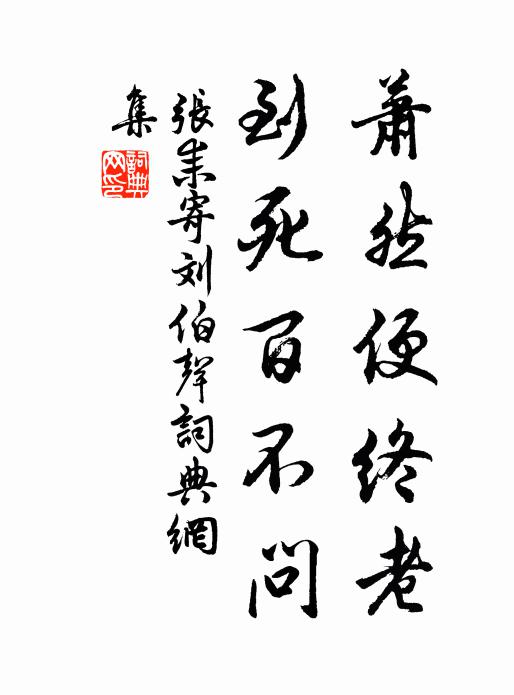 蕭然便終老
到死百不問
張耒寄刘伯聲詞典網
集
詞典
网印